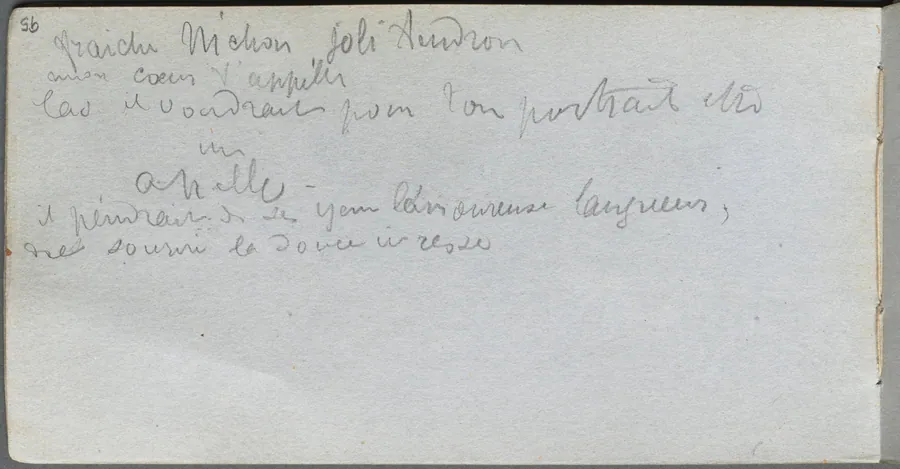 56
fraiche Nichon joli tendron
mon cœur t'appelle
la il voudrait pour ton portrait etre
un
apelle -
il peindrait de ses yeux l'amoureuse langueur,
sourir la douce ivresse